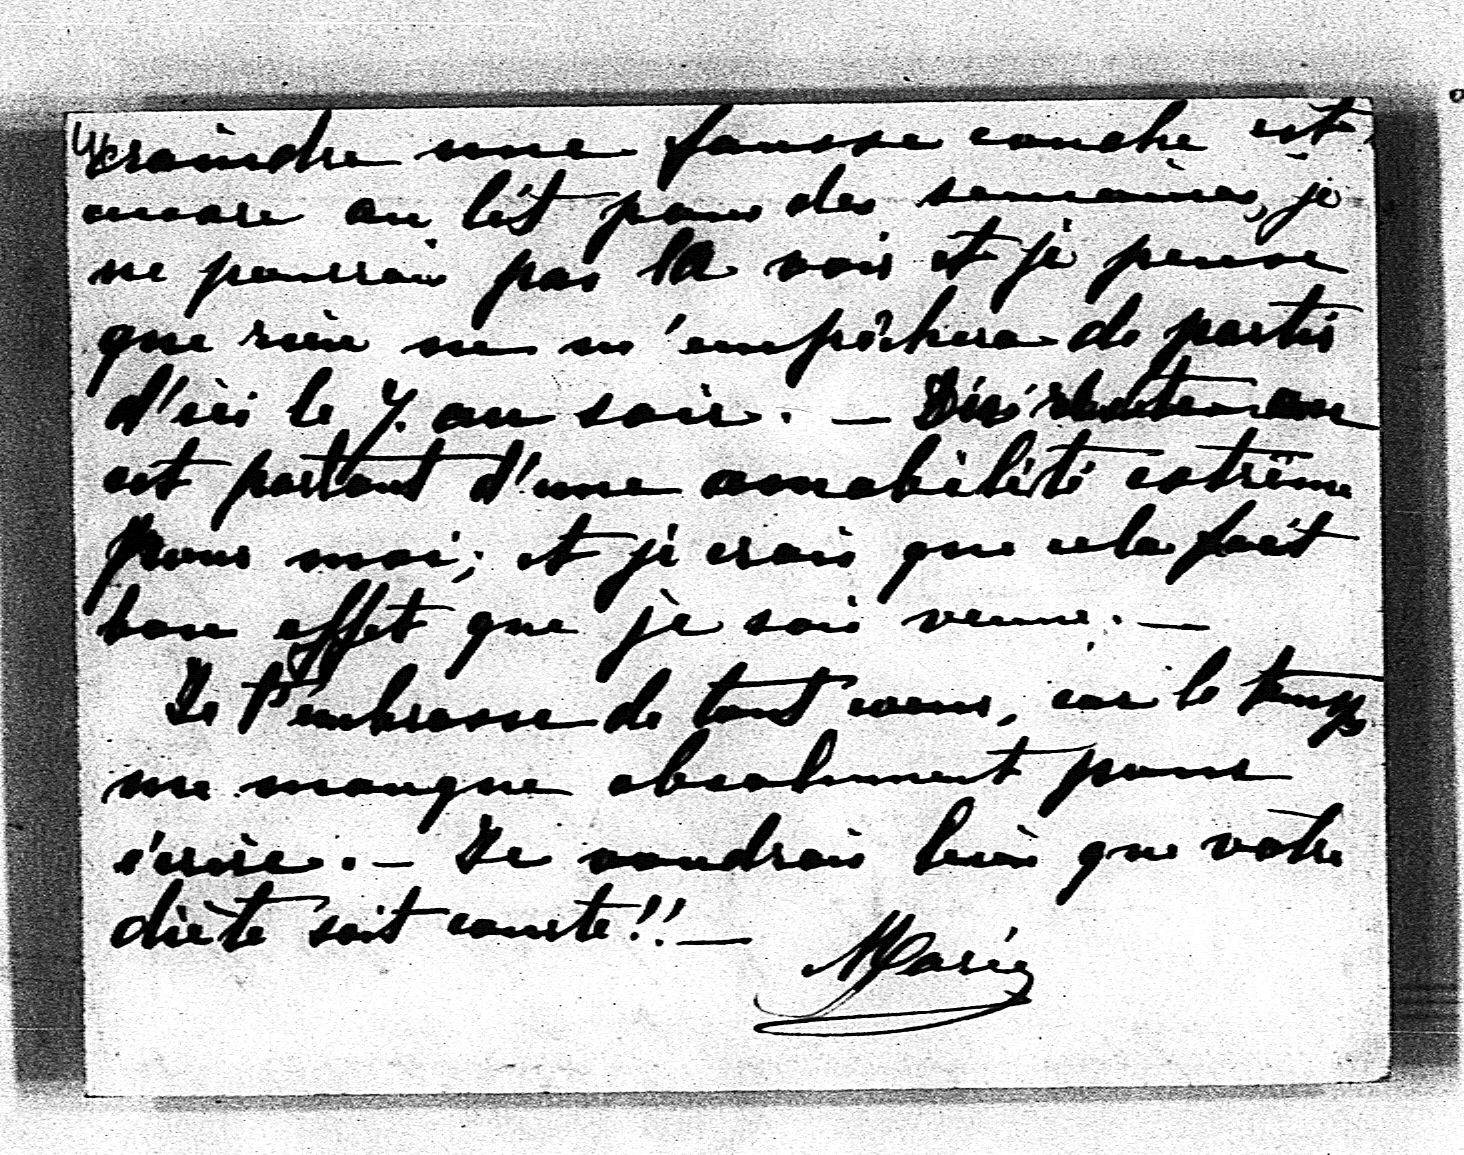 craindre une fausse couche est
encore au lit pour des semaines, je
ne pourrai pas la voir et je pense
que rien ne m'empêchera de partir
d'ici le 7. au soir. —
est partout d'une amabilité extrême
pour moi; et je crois que cela fait
bon effet que je sois venue. —
Je t'embrasse de tout coeur, car le temps
me manque absolument pour
écrire. — Je voudrais bien que votre
diète soit courte!! —
Marie